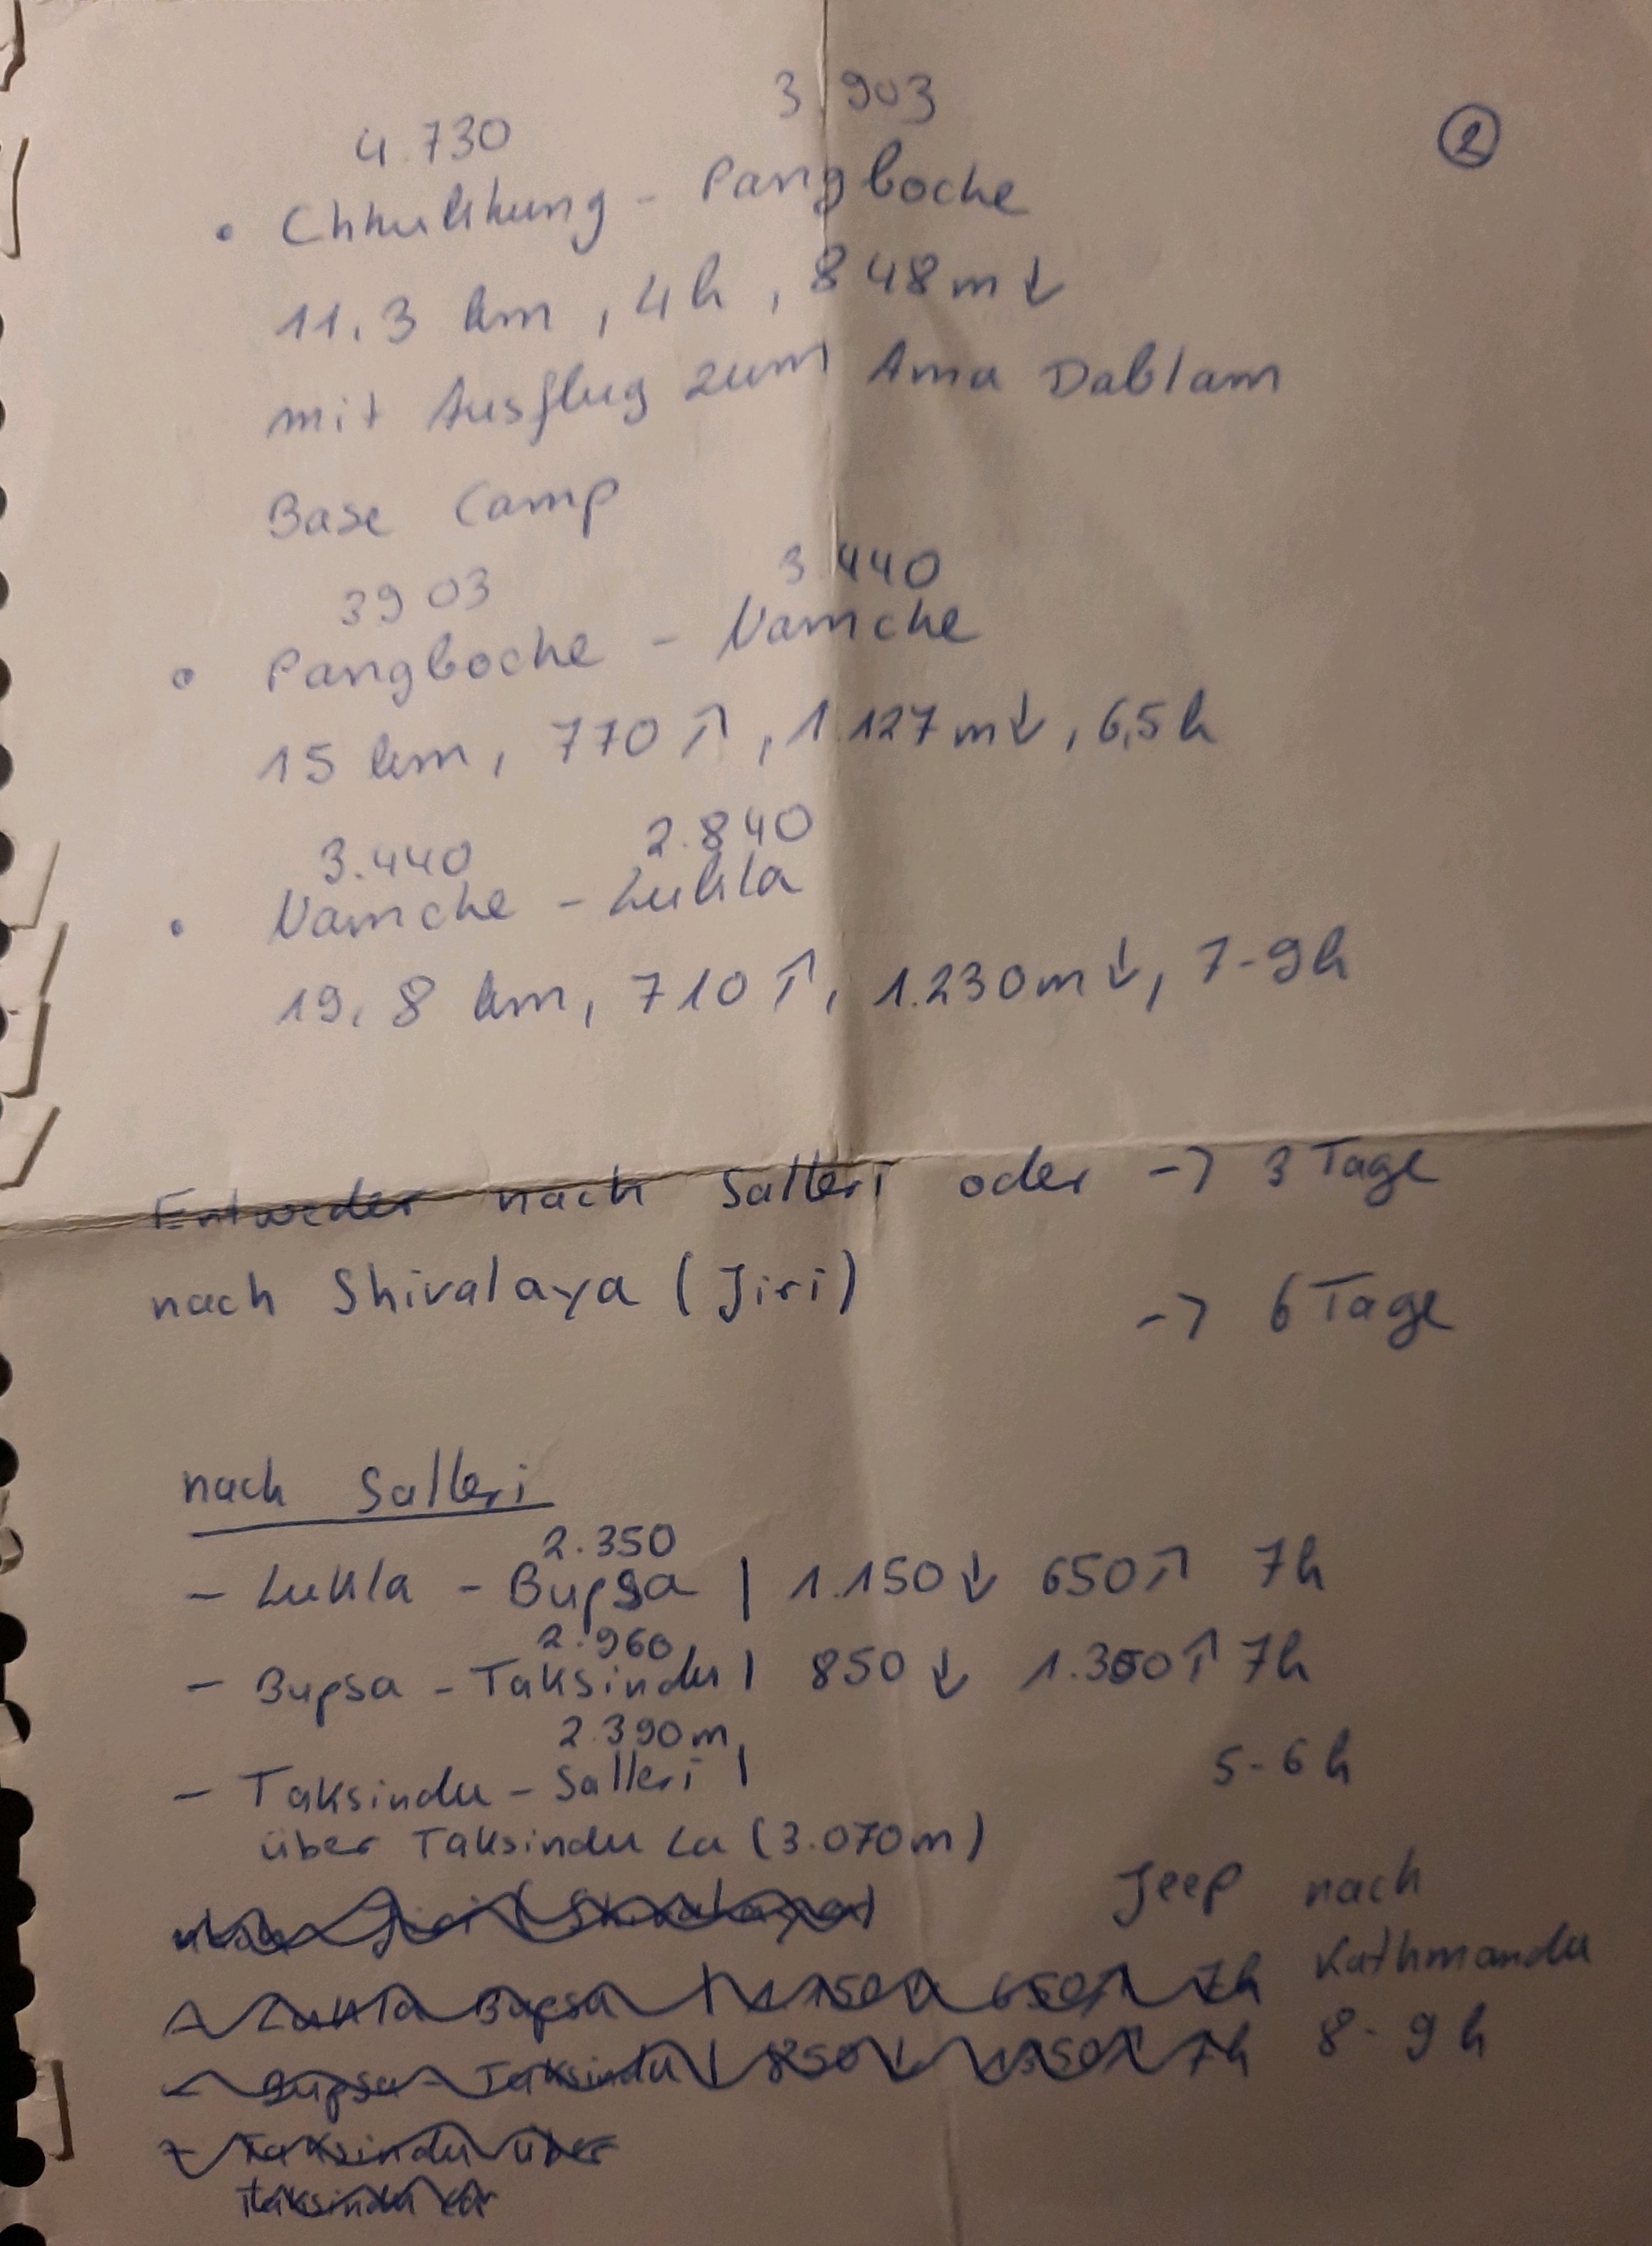 ②
4.730 3903
• Chhukhung - Pangboche
11,3 km, 4h, 848m↓
mit Ausflug zum Ama Dablam
Base Camp
3903 3.440
• Pangboche - Namche
15 km, 770↑, 1.127m↓, 6,5h
3.440 2.840
• Namche - Lukla
19,8 km, 710↑, 1.230m↓, 7-9h
Entweder nach Salleri oder -> 3 Tage
nach Shivalaya (Jiri) -> 6 Tage
nach Salleri
2.350
- Lukla - Bupsa | 1.150↓ 650↑ 7h
2.960
- Bupsa - Taksindu | 850↓ 1.350↑ 7h
2.390m
- Taksindu - Salleri | 5-6h
über Taksindu La (3.070m)
Jeep nach
Kathmandu
8-9h
Jiri (Shivalaya)
- Lukla Bupsa | 1.150↓ 650↑ 7h
- Bupsa - Taksindu | 850↓ 1350↑ 7h
- Taksindu über
Taksindu La